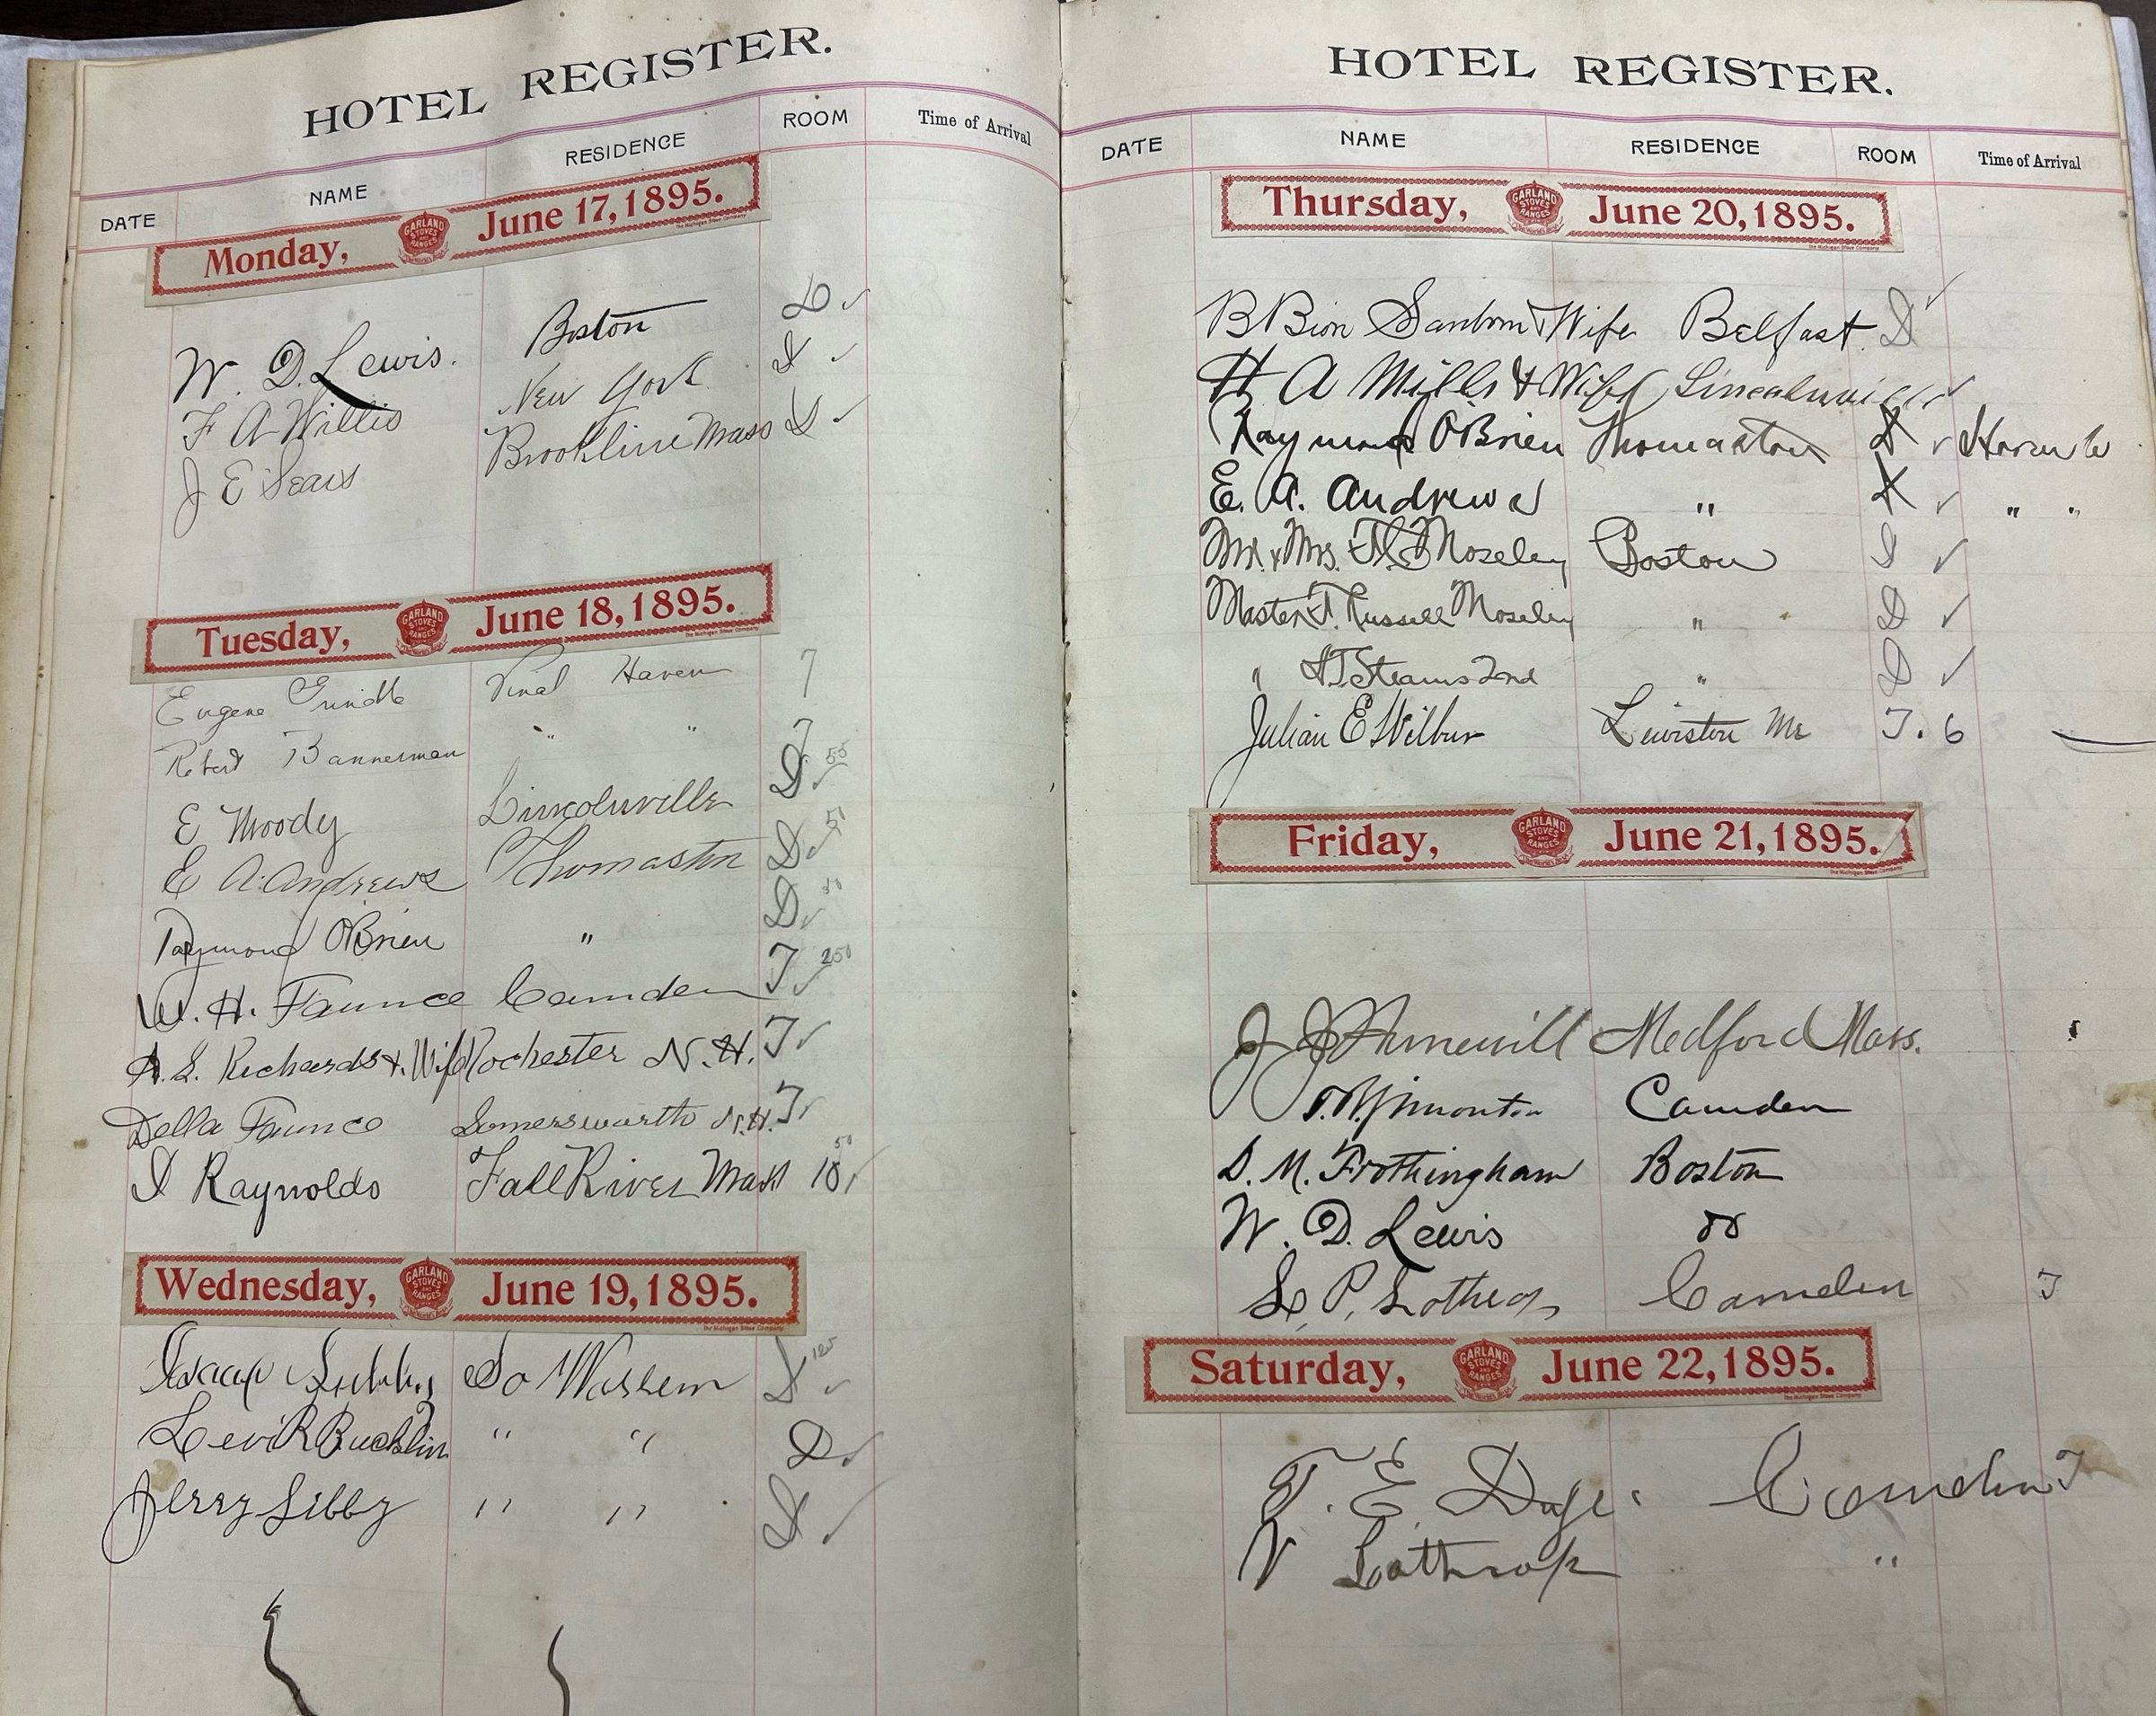 HOTEL REGISTER.
DATE NAME RESIDENCE ROOM Time of Arrival
Monday, GARLAND STOVES AND RANGES June 17, 1895.
The Michigan Stove Company
W. D. Lewis. Boston D ✓
F A Willis New York D ✓
J E Sears Brookline Mass D ✓
Tuesday, GARLAND STOVES AND RANGES June 18, 1895.
The Michigan Stove Company
Eugene Grindle Vinal Haven 7
Robert Bannerman " " 7
E Moody Lincolnville D 55 ✓
E A. Andrews Thomaston D 50 ✓
Raymond O'Brien " D ✓
W. H. Faunce Camden T 250 ✓
A. S. Richards & Wife Rochester N. H. T ✓
Della Faunce Somersworth N.H. T ✓
I Raynolds Fall River Mass 10 50 ✓
Wednesday, GARLAND STOVES AND RANGES June 19, 1895.
The Michigan Stove Company
Isaac Libby So Warren D ✓
Levi R Bucklin " " D ✓
Jerry Libby " " D ✓
HOTEL REGISTER.
DATE NAME RESIDENCE ROOM Time of Arrival
Thursday, GARLAND STOVES AND RANGES June 20, 1895.
The Michigan Stove Company
B Bion Sanborn & Wife Belfast. D ✓
H A Mills & Wife Lincolnville ✓
Raymond O'Brien Thomaston D ✓
E. A. Andrews " D ✓ " "
Mr. & Mrs. Moseley Boston D ✓
Master F. Russell Moseley " D ✓
" Stearns 2nd " D ✓
Julian E Wilbur Lewiston Me T. 6
Friday, GARLAND STOVES AND RANGES June 21, 1895.
The Michigan Stove Company
J Medford Mass.
Simonton Camden
D. M. Frothingham Boston
W. D. Lewis do
L. P. Lothrop Camden T
Saturday, GARLAND STOVES AND RANGES June 22, 1895.
The Michigan Stove Company
T. E. Camden T
V Lathrop "